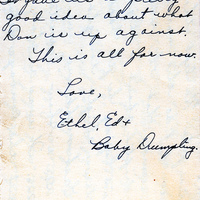 good idea about what
Don is up against.
This is all for now.
Love,
Ethel, Ed +
Baby Dumpling.